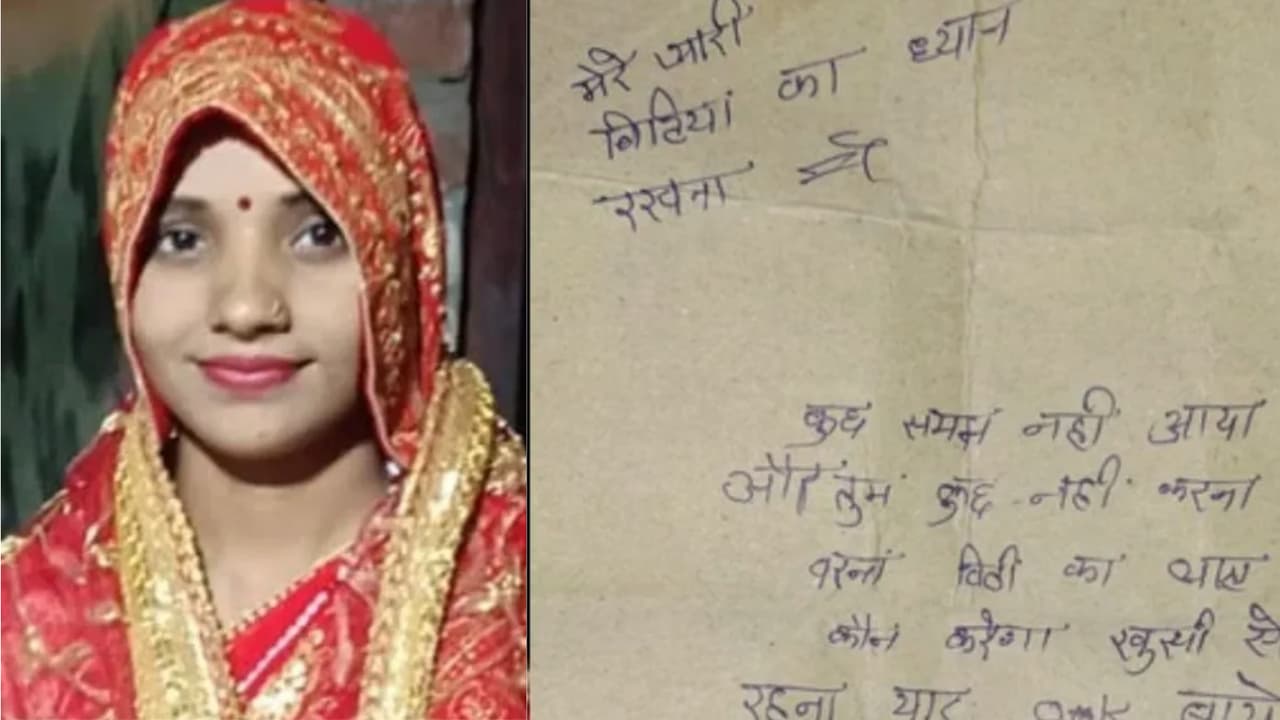 मेरे प्यारी
बिटियां का ध्यान
रखना
कुछ समझ नहीं आया
और तुम कुछ नही करना
वरना बिटी का ब्याह
कौन करेगा खुसी से
रहना यार